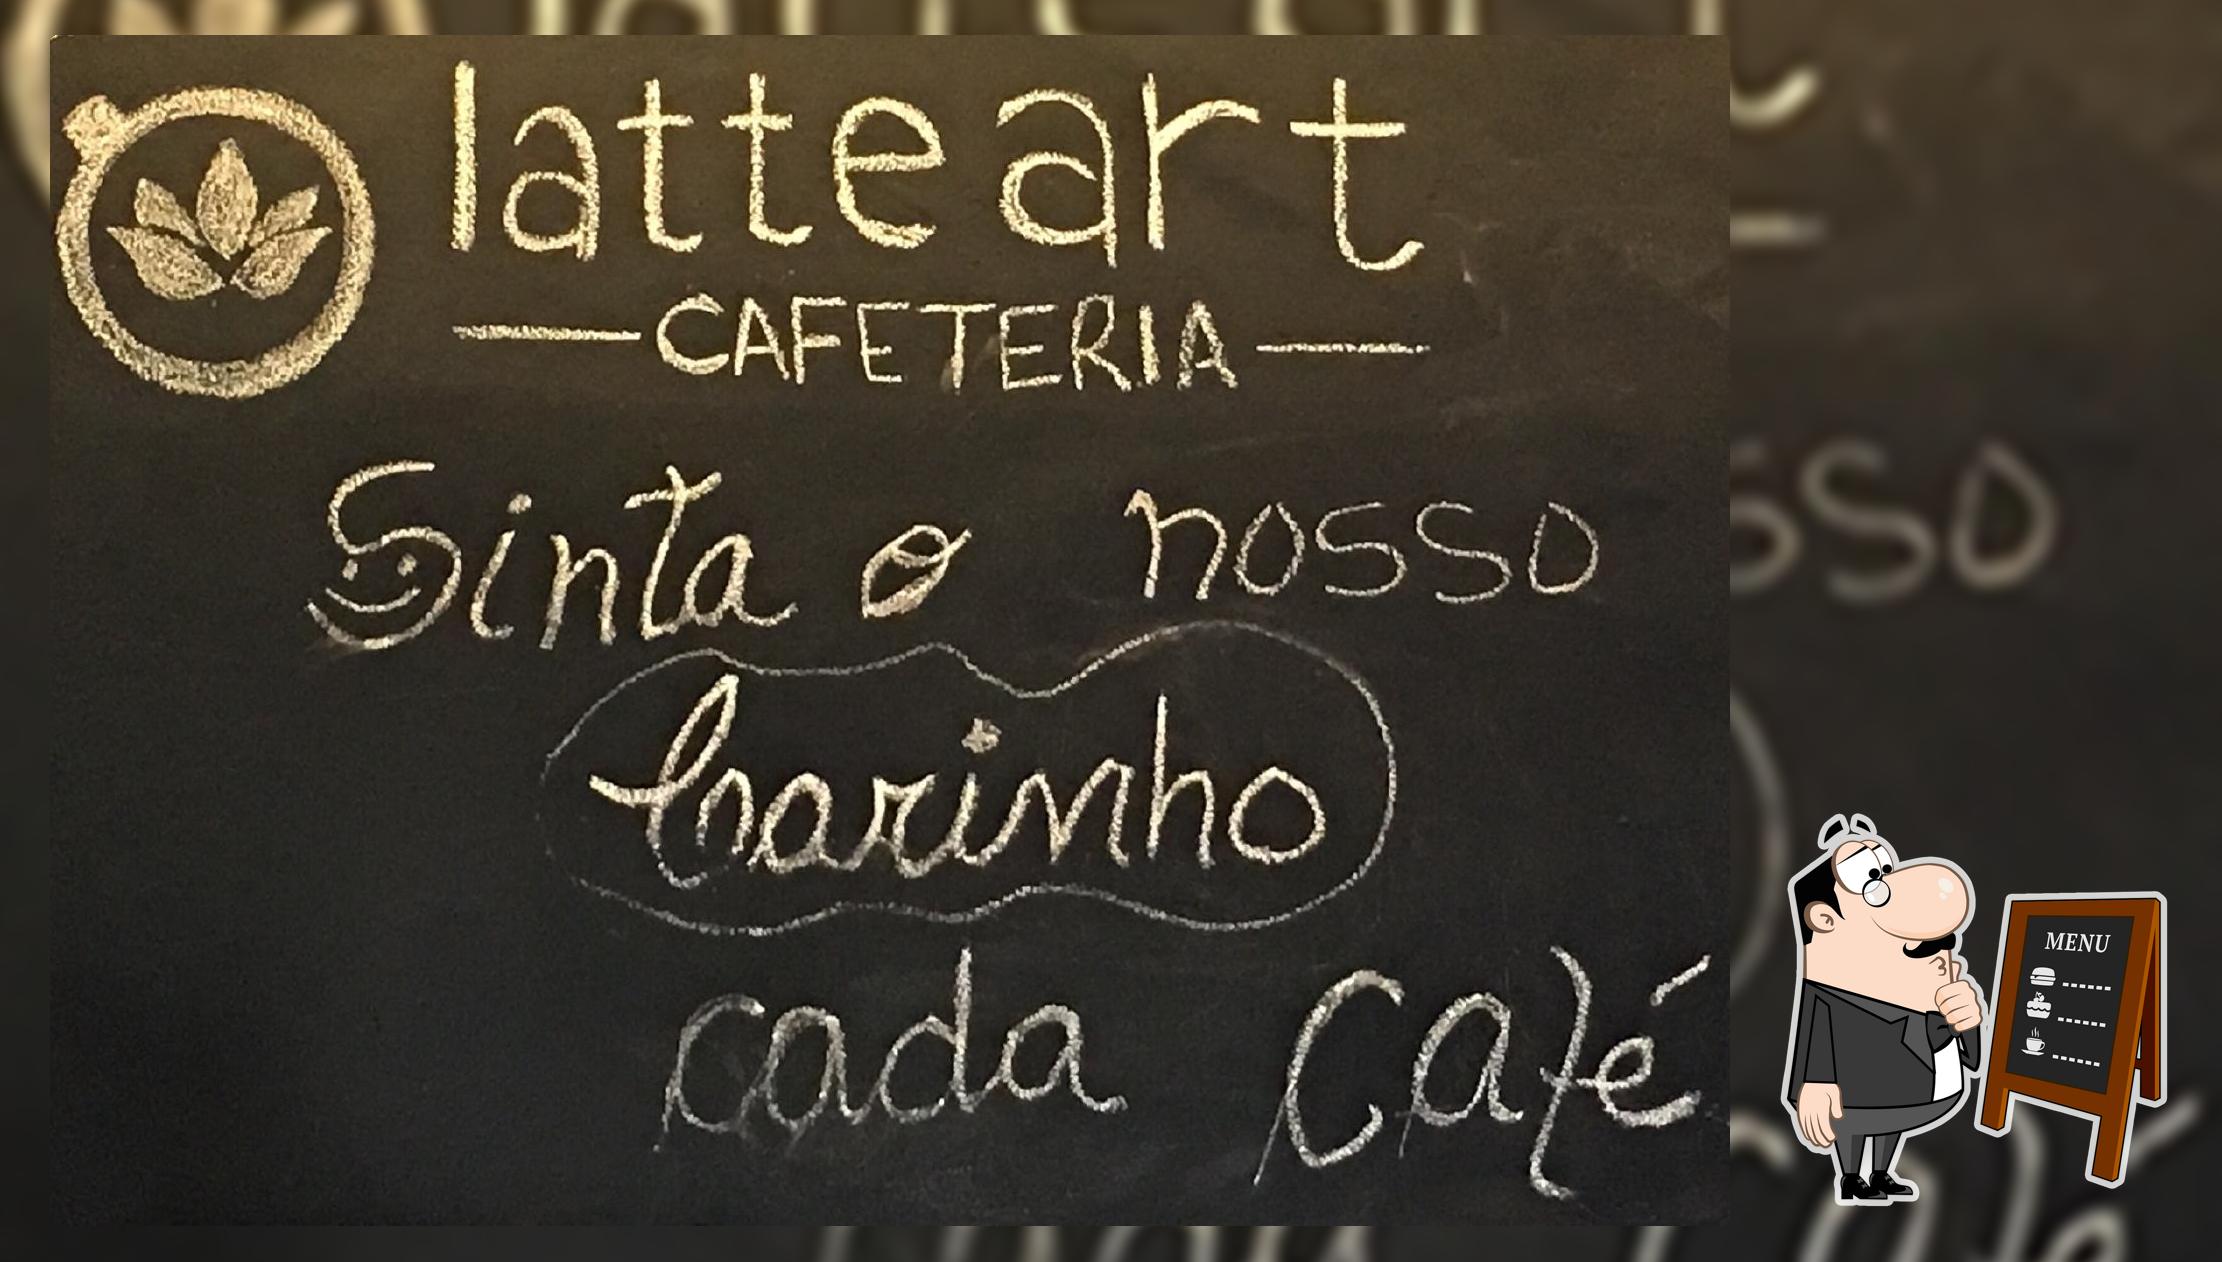 latte art
CAFETERIA
Sinta o nosso
Carinho
cada Café
MENU